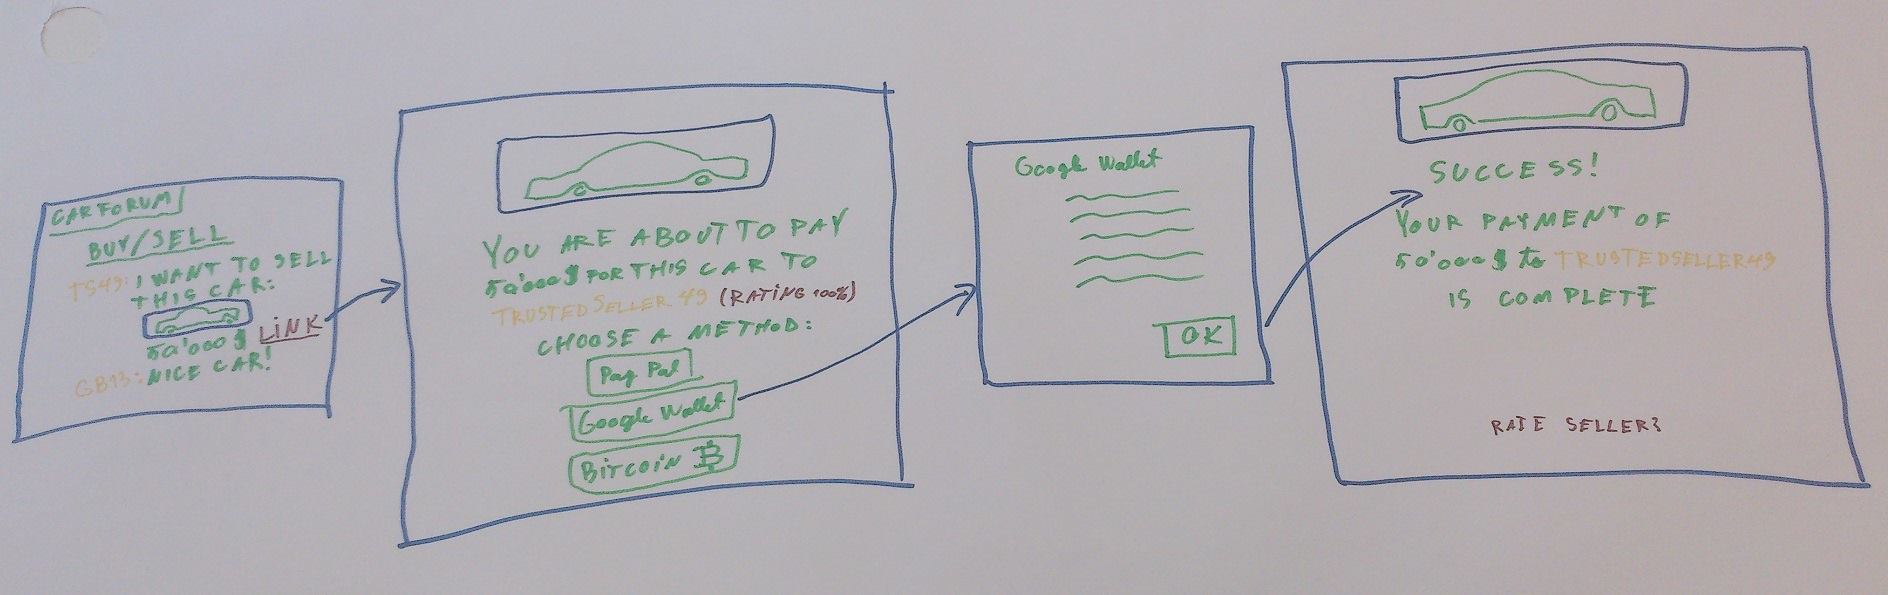 CAR FORUM
BUY/SELL
TS49: I WANT TO SELL
THIS CAR:
50'000$ LINK
GB13: NICE CAR!
YOU ARE ABOUT TO PAY
50'000$ FOR THIS CAR TO
TRUSTEDSELLER49 (RATING 100%)
CHOOSE A METHOD:
Pay Pal
Google Wallet
BitCOiN ₿
Google Wallet
OK
SUCCESS!
YOUR PAYMENT OF
50'000$ to TRUSTEDSELLER49
IS COMPLETE
RATE SELLER?